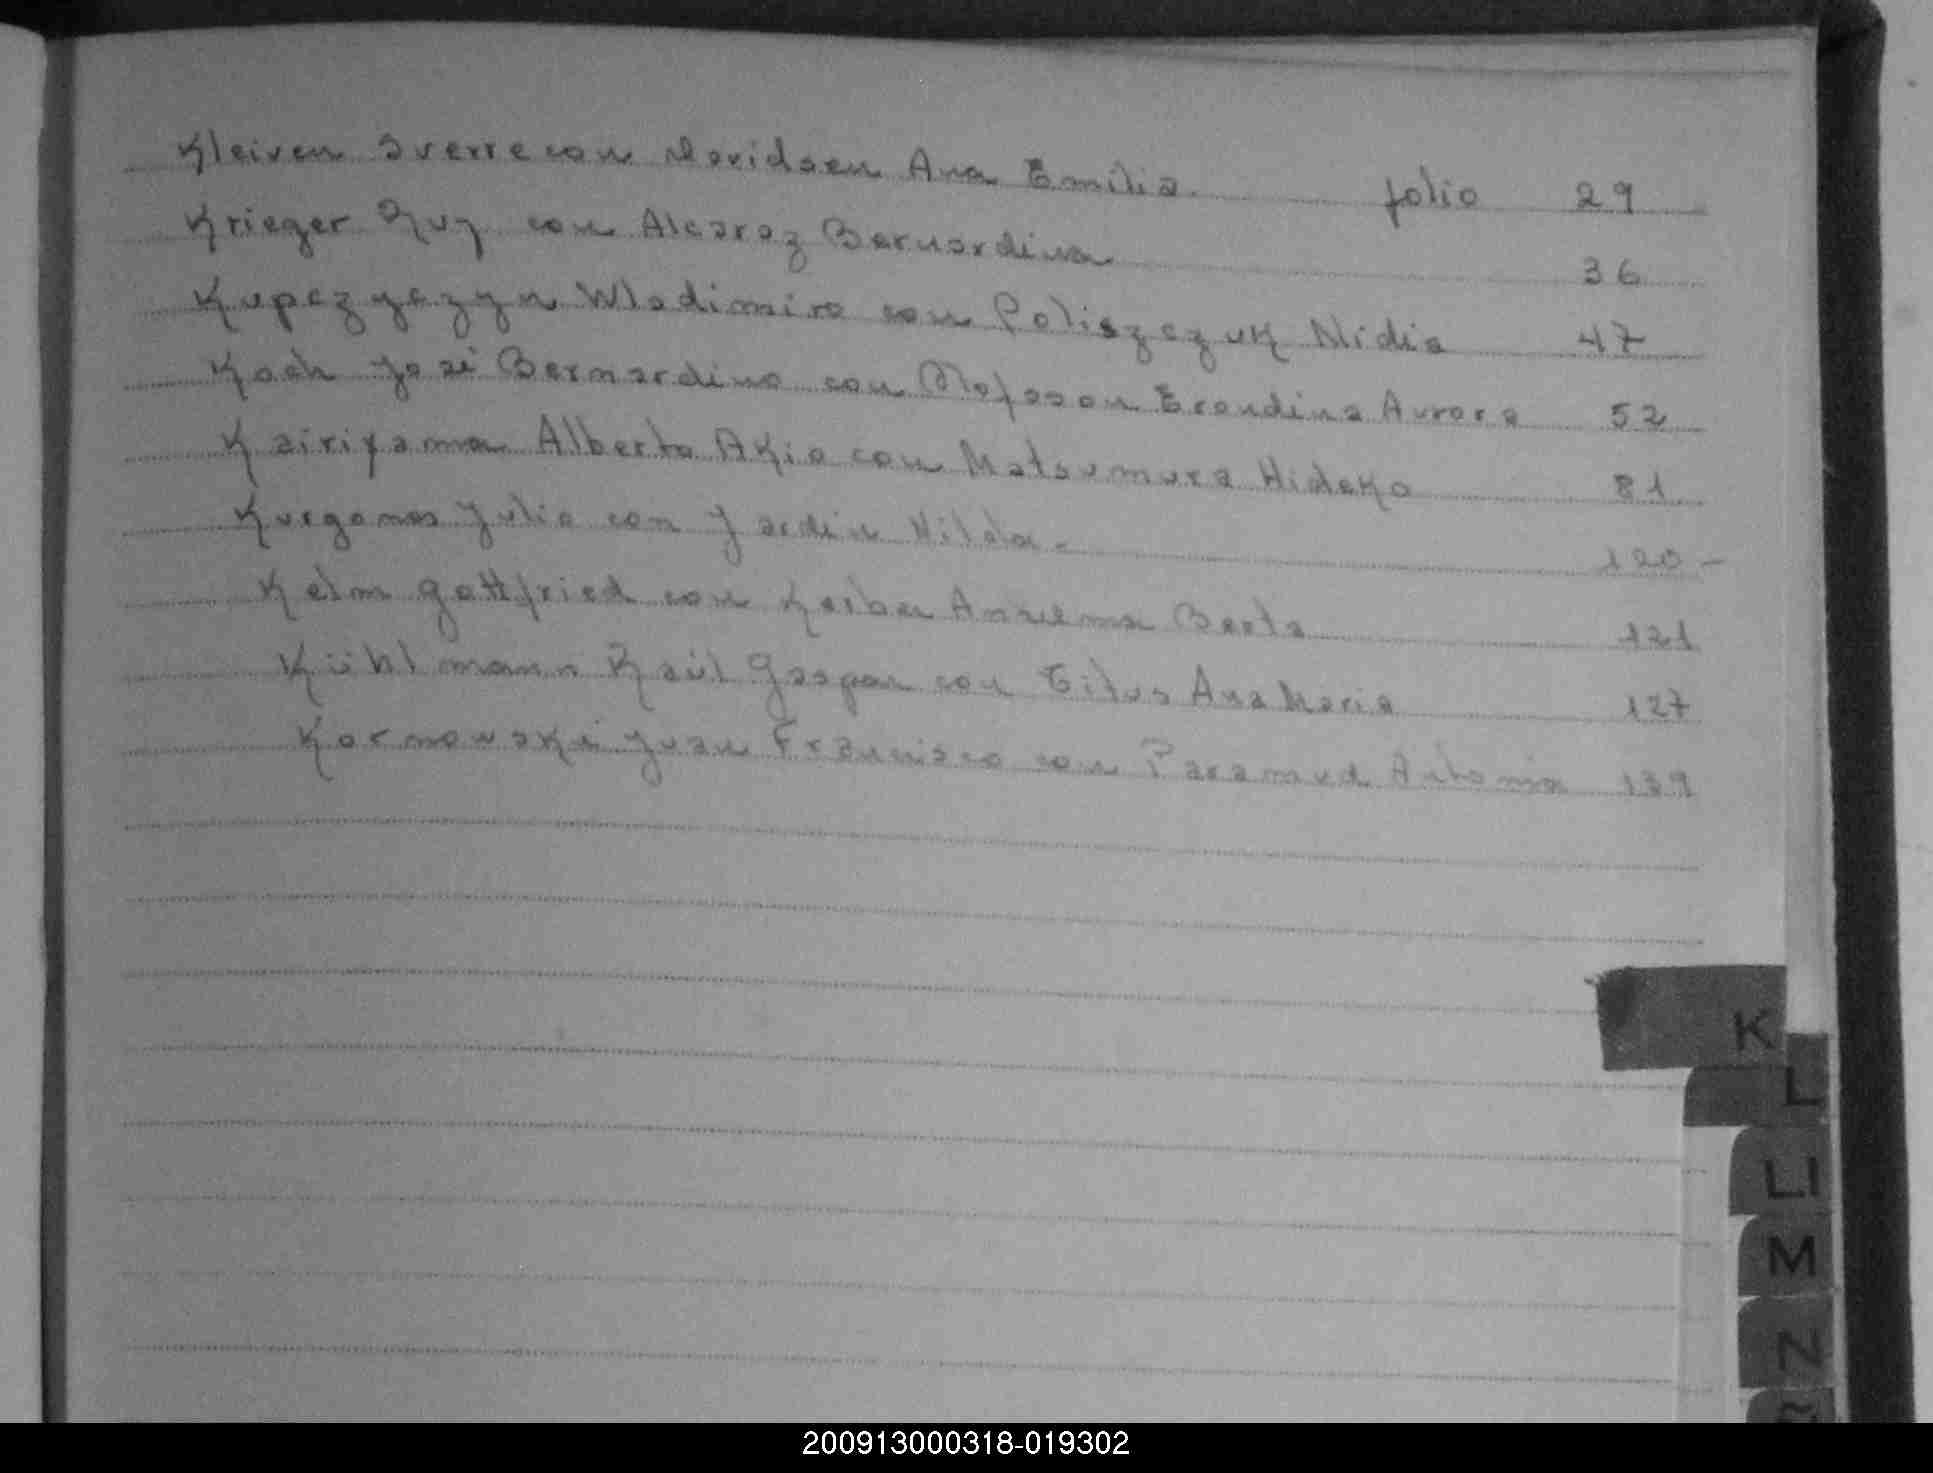 Kleiven Sverre con Davidsen Ana Emilia. folio 29
Krieger Ruy con Alcaraz Bernardina 36
Kupczyczyn Wladimiro con Poliszczuk Nidia 47
Koch José Bernardino con Erondina Aurora 52
Kairiyama Alberto Akio con Matsumura Hideko 81
Kurganos Julio con Jardin Hilda - 120 -
Kelm Gottfried con Kerber Anselma Berta 121
Kühlmann Raúl Gaspar con Titus Ana Maria 127
Kornowski Juan Francisco con Paramud Antonia 139
K
L
Ll
M
N
Ñ
200913000318-019302